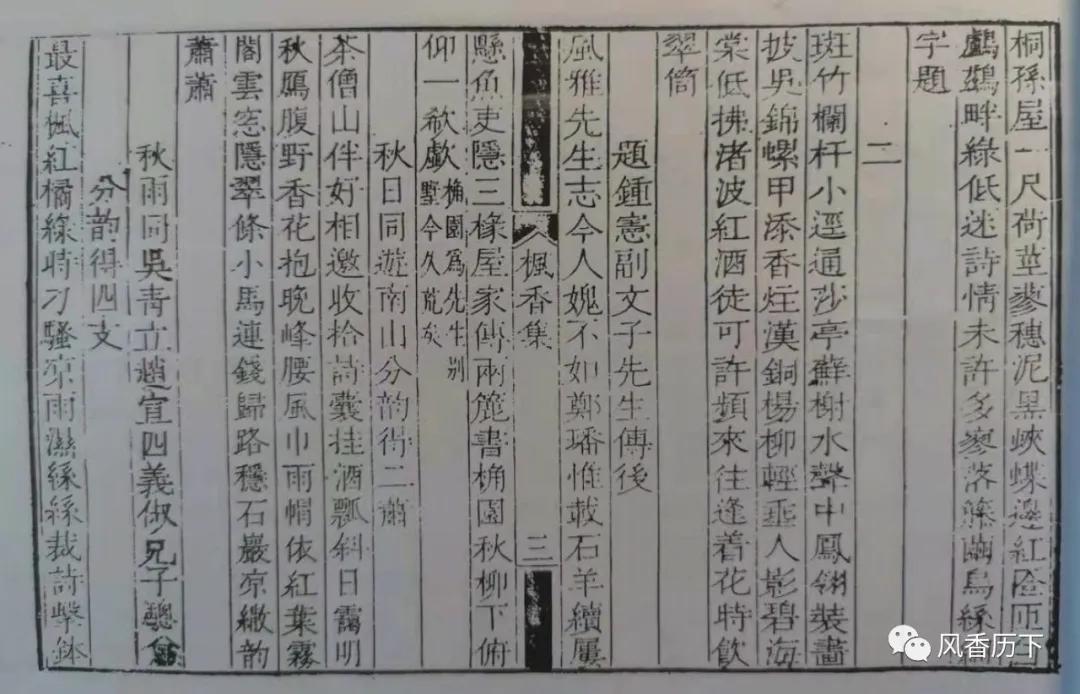 桐孫屋一尺荷莖蓼穗泥黑峽蝶邊紅陰匝
鸕鷀畔綠低迷詩情未許多寥落簾繭烏絲
字題
二
斑竹欄杆小逕通莎亭蘚榭水聲中鳳翎裝畫
披吳錦螺甲添香炷漢銅楊柳輕垂人影碧海
棠低拂渚波紅酒徒可許頻來往逢着花時飲
翠筒
題鍾憲副文子先生傳後
風雅先生志今人媿不如鄭璠惟載石羊續屢
楓香集
三
懸魚吏隱三椽屋家傳兩簏書桷園秋柳下俯
仰一欷歔桷園為先生別墅今久荒矣
秋日同遊南山分韵得二蕭
茶僧山伴好相邀收拾詩囊挂酒瓢斜日靄明
秋鴈腹野香花抱晚峰腰風巾雨帽依紅葉霧
閣雲窓隱翠條小馬連錢歸路穩石巖凉繖韵
蕭蕭
秋雨同吳青立趙宜四義俶兄子
分韵得四支
最喜楓紅橘綠時刁騷凉雨濕絲絲裁詩擊鉢
风香历下